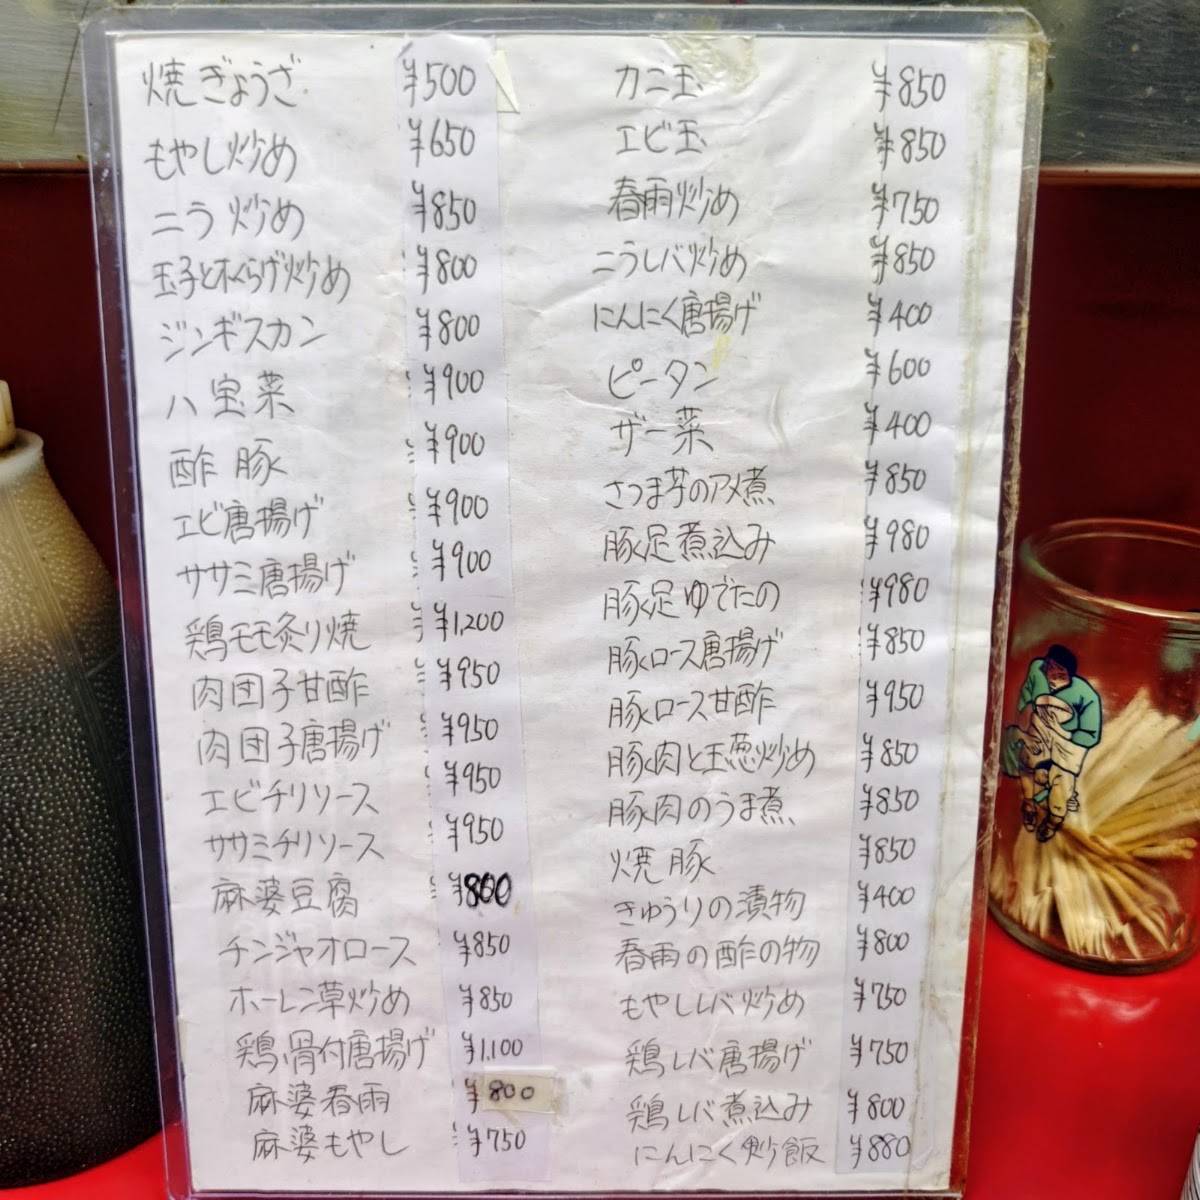 焼ぎょうざ ¥500
もやし炒め ¥650
ニラ炒め ¥850
玉子と木くらげ炒め ¥800
ジンギスカン ¥800
八宝菜 ¥900
酢豚 ¥900
エビ唐揚げ ¥900
ササミ唐揚げ ¥900
鶏モモ炙り焼 ¥1,200
肉団子甘酢 ¥950
肉団子唐揚げ ¥950
エビチリソース ¥950
ササミチリソース ¥950
麻婆豆腐 ¥800
チンジャオロース ¥850
ホーレン草炒め ¥850
鶏骨付唐揚げ ¥1,100
麻婆春雨 ¥800
麻婆もやし ¥750
カニ玉 ¥850
エビ玉 ¥850
春雨炒め ¥750
ニラレバ炒め ¥850
にんにく唐揚げ ¥400
ピータン ¥600
ザー菜 ¥400
さつま芋のアメ煮 ¥850
豚足煮込み ¥980
豚足ゆでたの ¥980
豚ロース唐揚げ ¥850
豚ロース甘酢 ¥950
豚肉と玉葱炒め ¥850
豚肉のうま煮 ¥850
焼豚 ¥850
きゅうりの漬物 ¥400
春雨の酢の物 ¥800
もやしレバ炒め ¥750
鶏レバ唐揚げ ¥750
鶏レバ煮込み ¥800
にんにく炒飯 ¥880